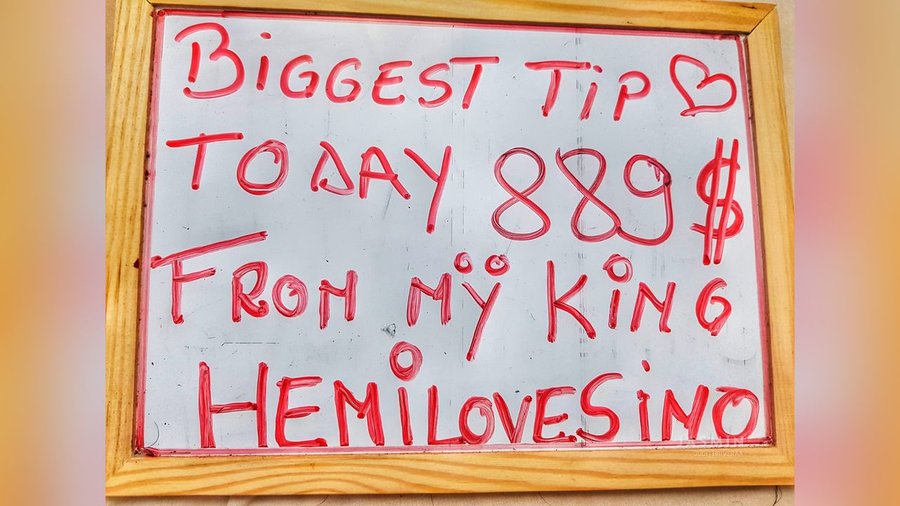 BiGGEST TiP
TODAY 889 $
FROM MŸ KiNG
HEMiLOVESiNO
JASMIN